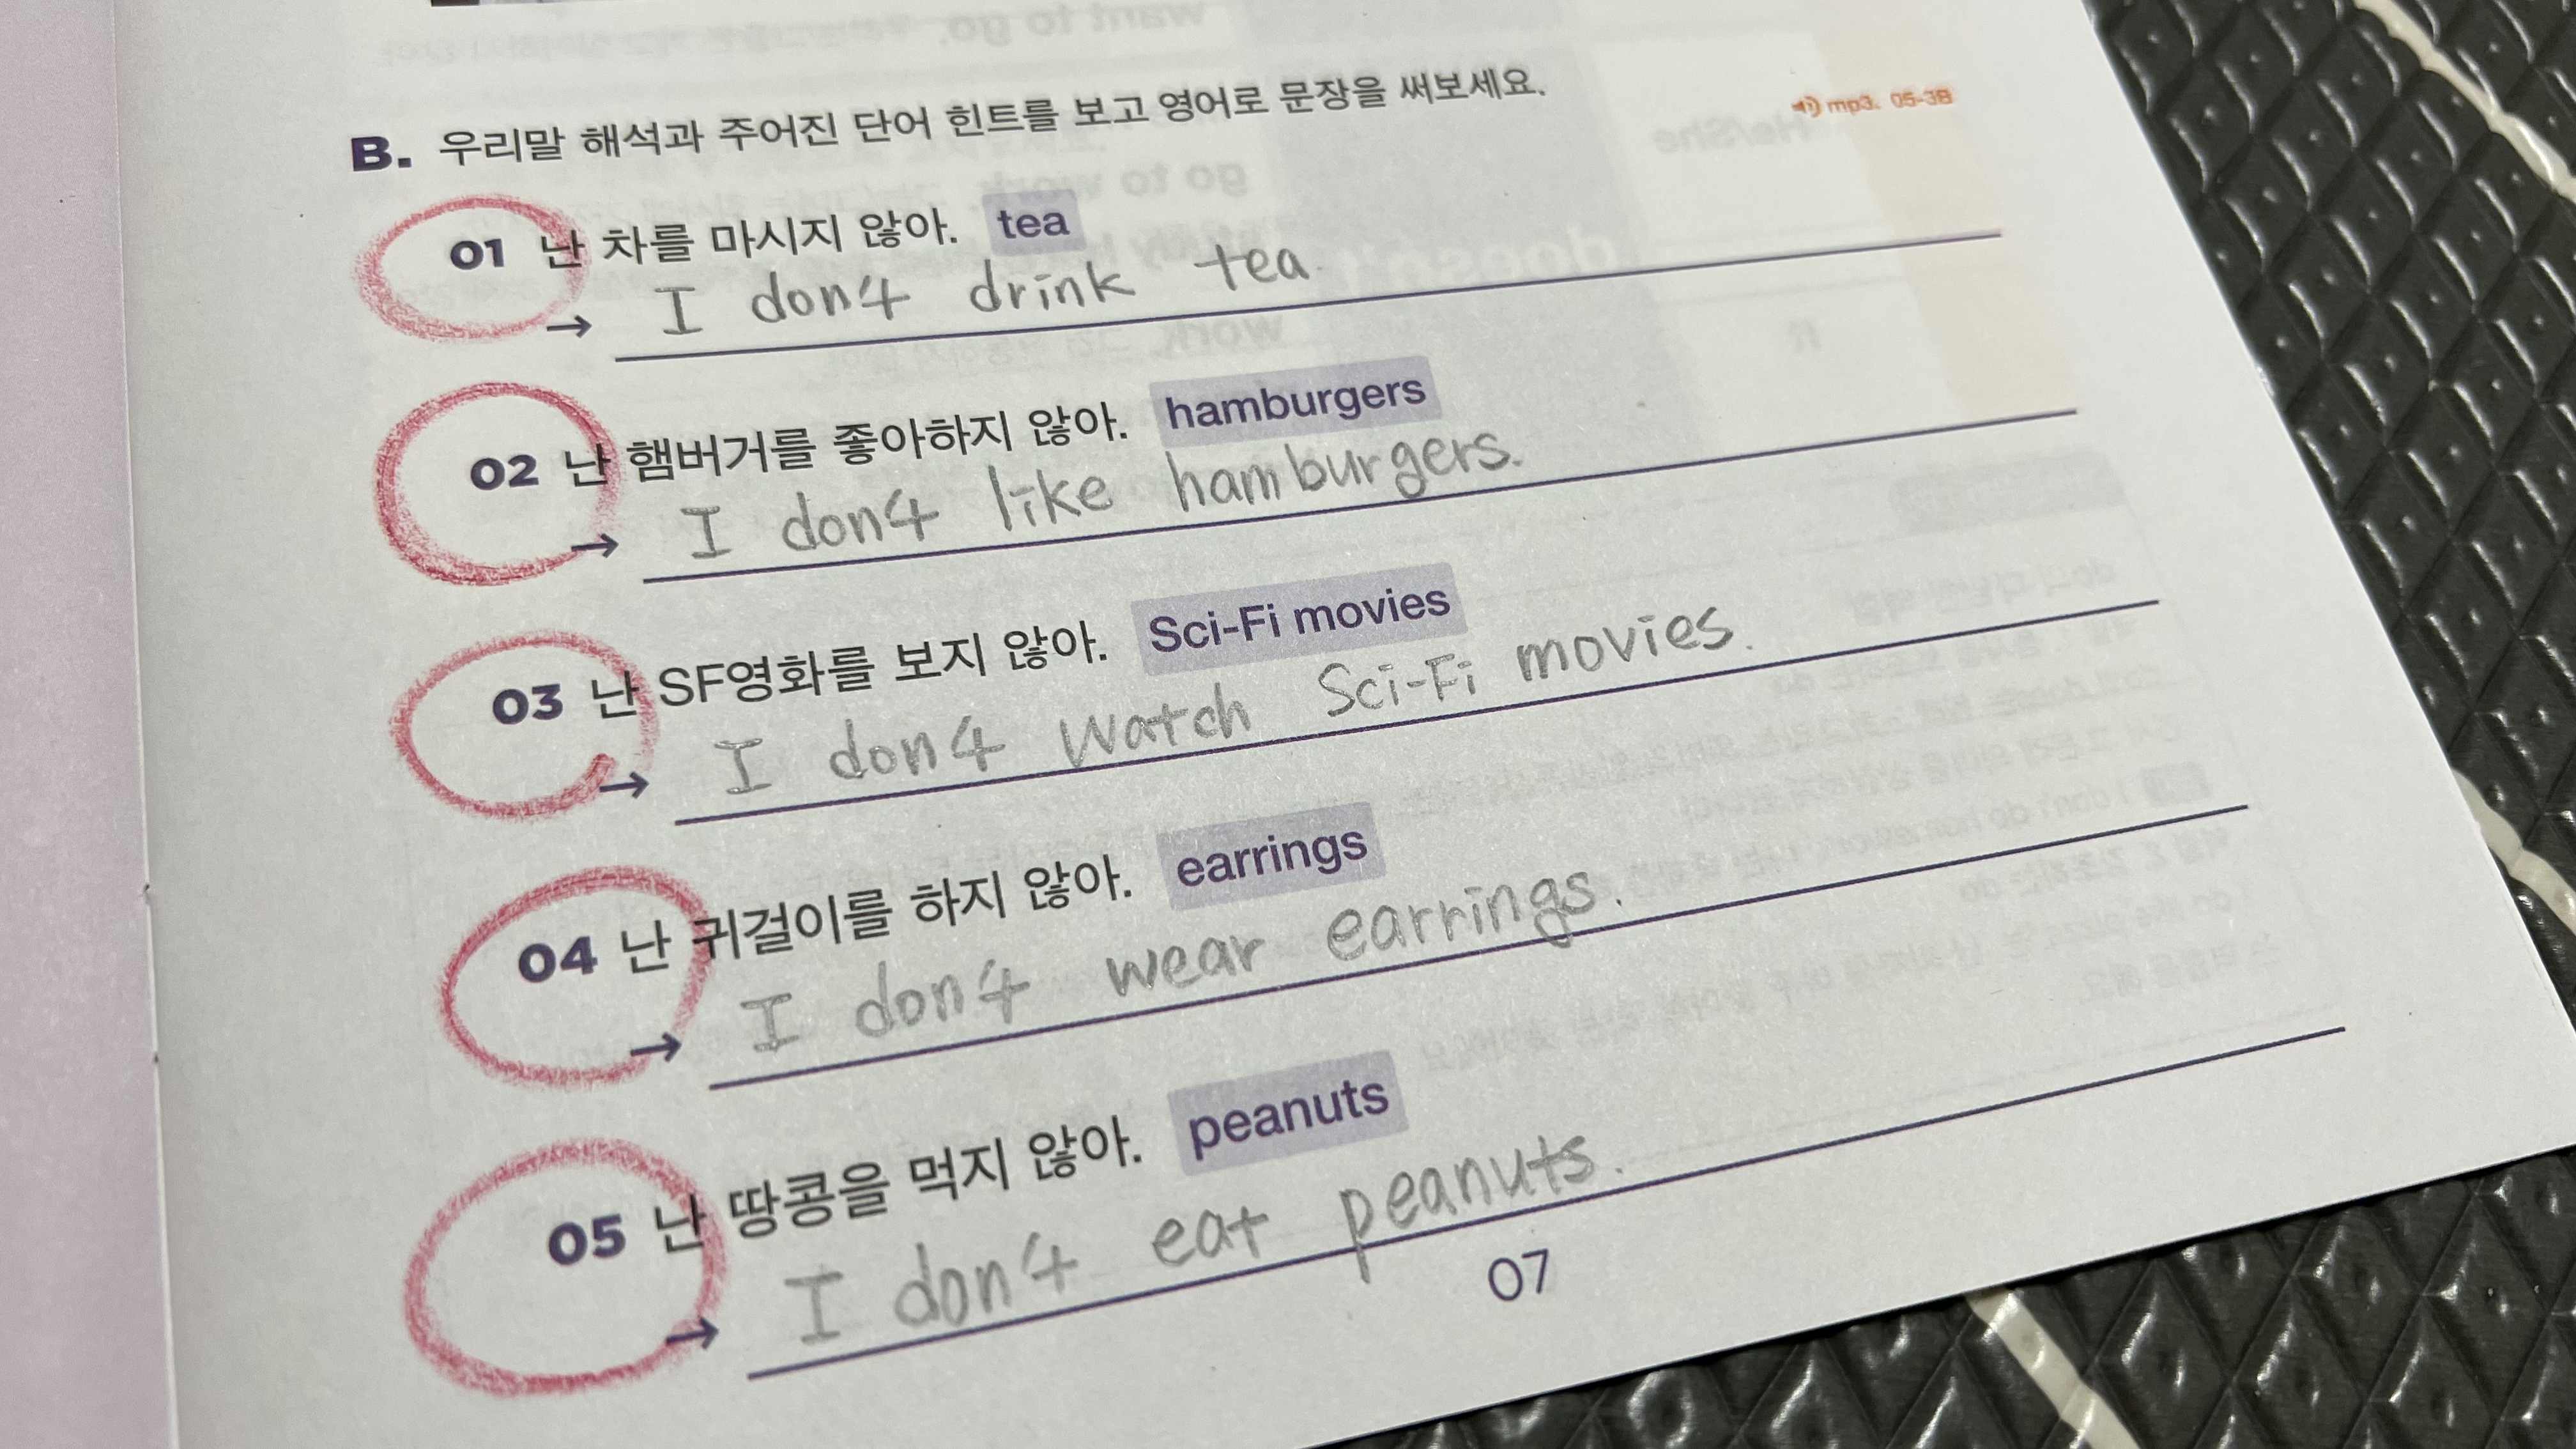 B. 우리말 해석과 주어진 단어 힌트를 보고 영어로 문장을 써보세요.
mp3. 05-3B
01 난 차를 마시지 않아. tea
→ I don't drink tea
02 난 햄버거를 좋아하지 않아. hamburgers
→ I don't like hamburgers.
03 난 SF영화를 보지 않아. Sci-Fi movies
→ I don't watch Sci-Fi movies.
04 난 귀걸이를 하지 않아. earrings
→ I don't wear earrings.
05 난 땅콩을 먹지 않아. peanuts
→ I don't eat peanuts.
07